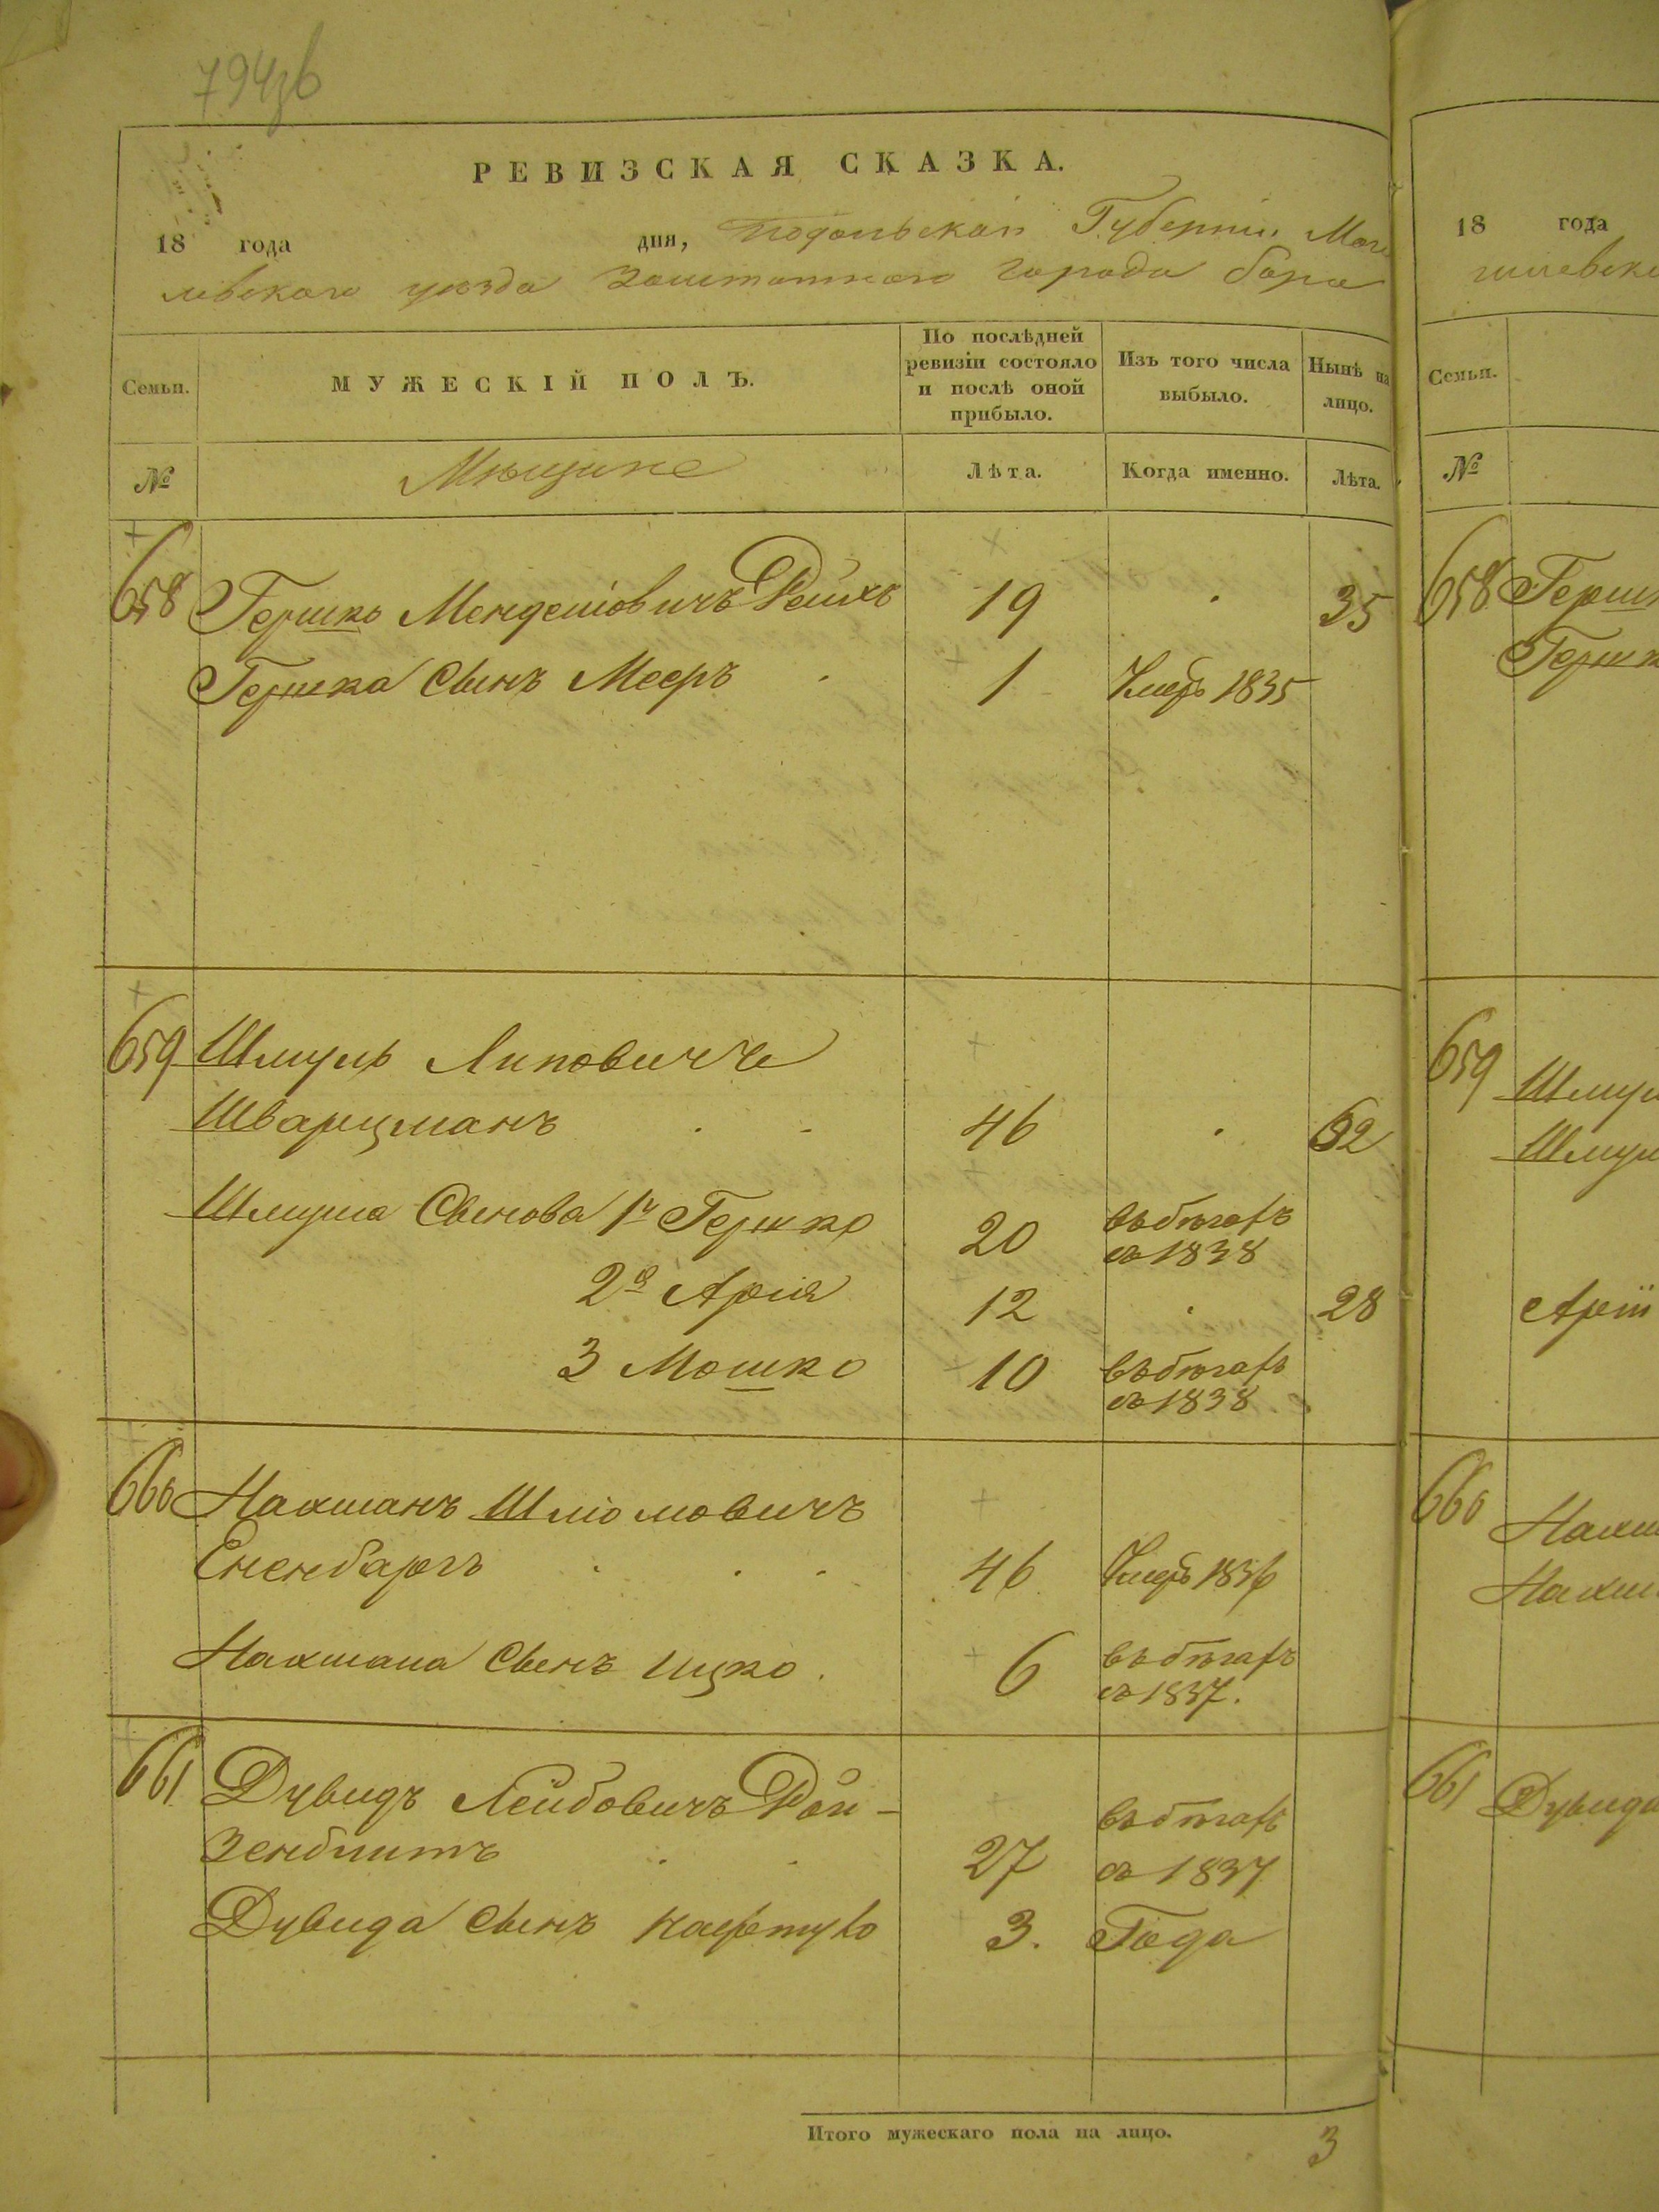 794зв
РЕВИЗСКАЯ СКАЗКА.
18 года дня, Подольской Губернии Моги
левского уезда Заштатного города Бара
Семьи.
МУЖЕСКІЙ ПОЛЪ.
По послѣдней ревизіи состояло и послѣ оной прибыло.
Изъ того числа выбыло.
Нынѣ на лицо.
№
Мещане
Лѣта.
Когда именно.
Лѣта.
658 Гершко Менделіовичъ Рейхъ 19 35
Гершка Сынъ Мееръ 1 Умеръ 1835
659 Шмуль Липовичъ
Шварцманъ 46 62
Шмуля Сынова 1й Гершко 20 въ бѣгахъ
съ 1838
2й Арія 12 28
3 Мошко 10 въ бѣгахъ
съ 1838
660 Нахманъ Шліомовичъ
Ененбаргъ 46 Умеръ 1836
Нахмана Сынъ Ицко 6 въ бѣгахъ
съ 1837.
661 Дувидъ Лейбовичъ Рой-
зенблитъ 27 въ бѣгахъ
съ 1837
Дувида Сынъ 3. Года
Итого мужескаго пола на лицо. 3
18 года
гилевск
Семьи.
№
658 Герш
Гершк
659 Шмул
Шмул
Арій
660 Нахм
Нахм
661 Дувида